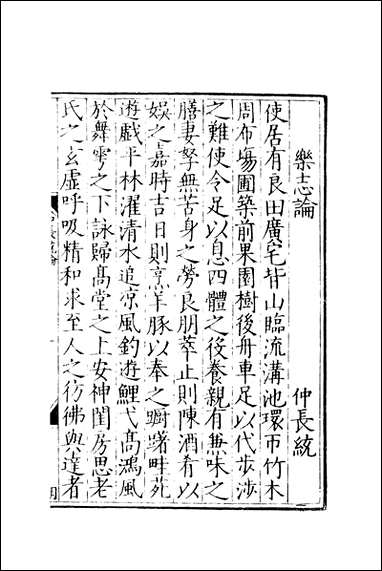 樂志論 仲長統
使居有良田廣宅背山臨流溝池環帀竹木
周布塲圃築前果園樹後舟車足以代步涉
之難使令足以息四體之役養親有兼味之
膳妻孥無苦身之勞良朋萃止則陳酒肴以
娛之嘉時吉日則烹羊豚以奉之躕躇畦苑
遊戲平林濯清水追凉風釣遊鯉弋高鴻風
於舞雩之下詠歸高堂之上安神閨房思老
氏之玄虛呼吸精和求至人之彷彿與達者